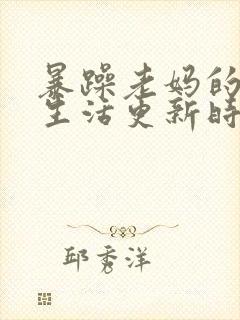 暴躁老妈的
生活更新时
邱秀洋